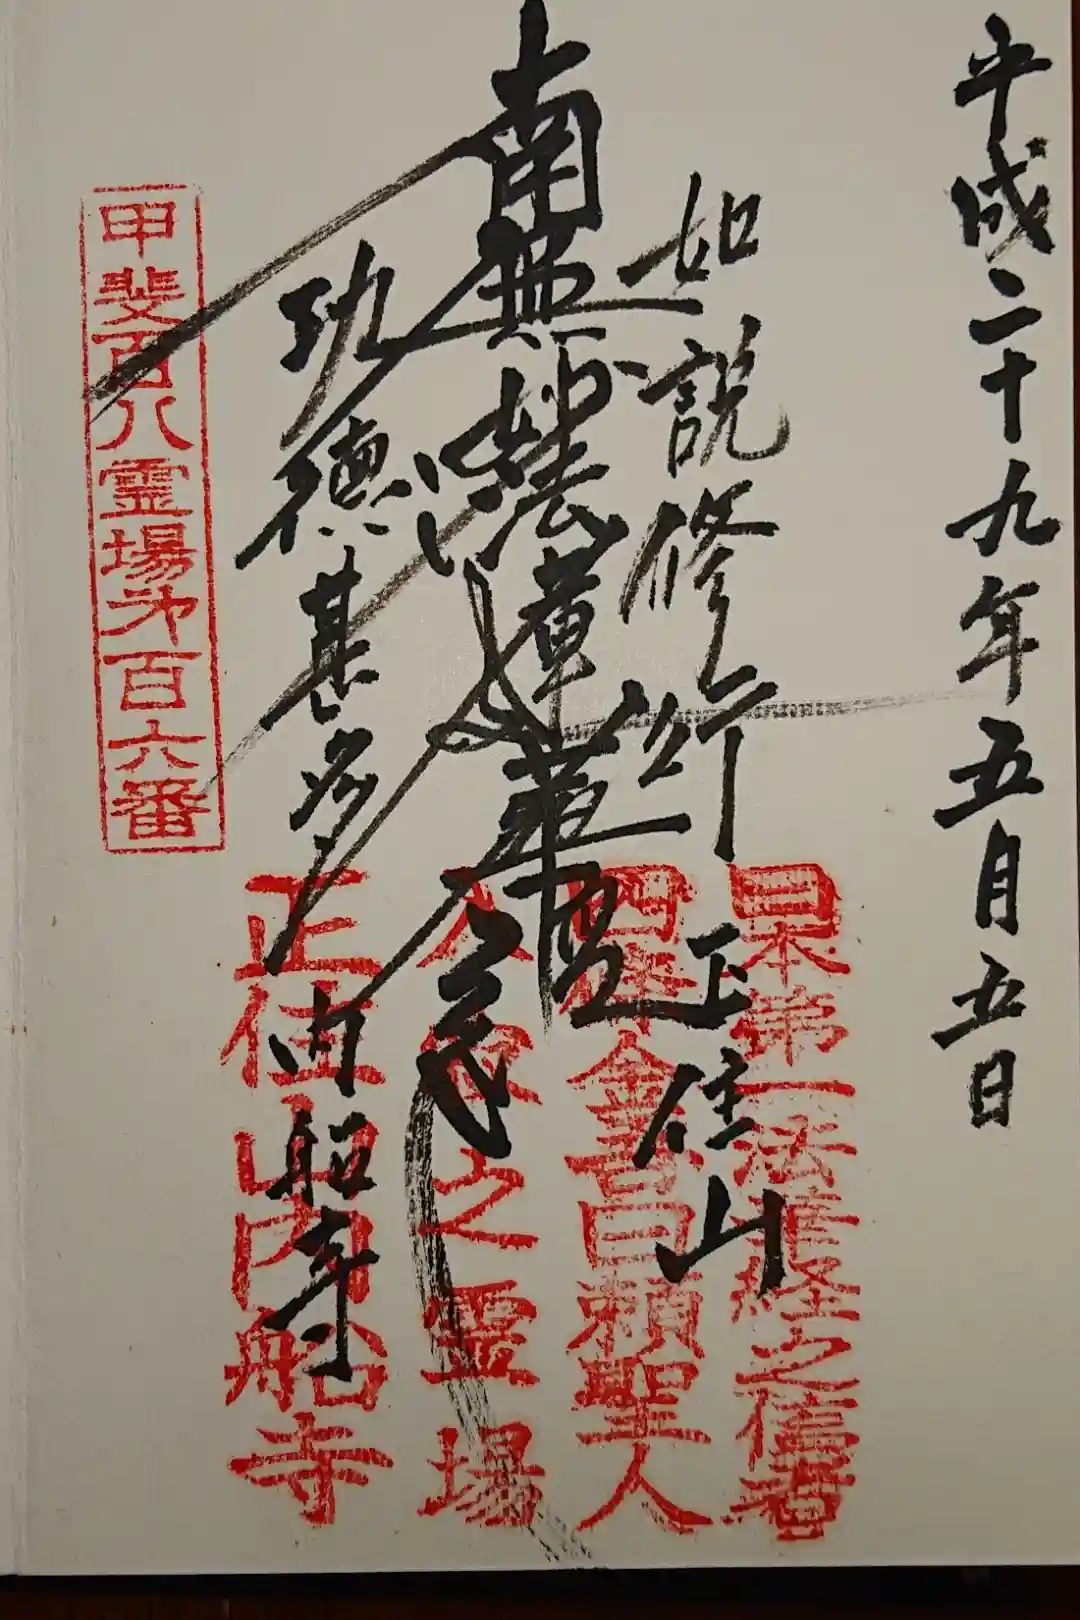 平成二十九年五月五日
如説修行 正住山
南無妙法蓮華経
功徳甚多 内船寺
甲斐百八霊場第百六番
日本第一法華経之信者
四條金吾日頼聖人
之霊場
正住山内船寺